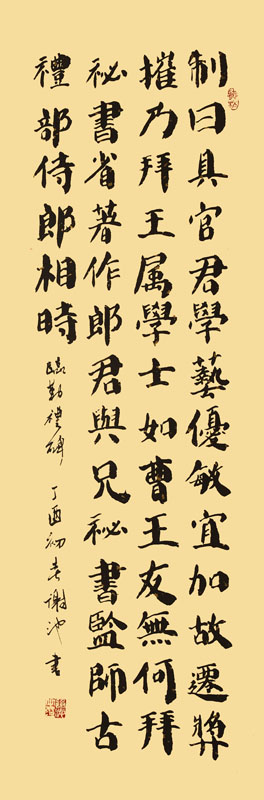 制曰具官君學藝優敏宜加故遷奬
擢乃拜王属學士如曹王友無何拜
祕書省著作郎君與兄祕書監師古
禮部侍郎相時
臨勤禮碑 丁酉初春謝沖書